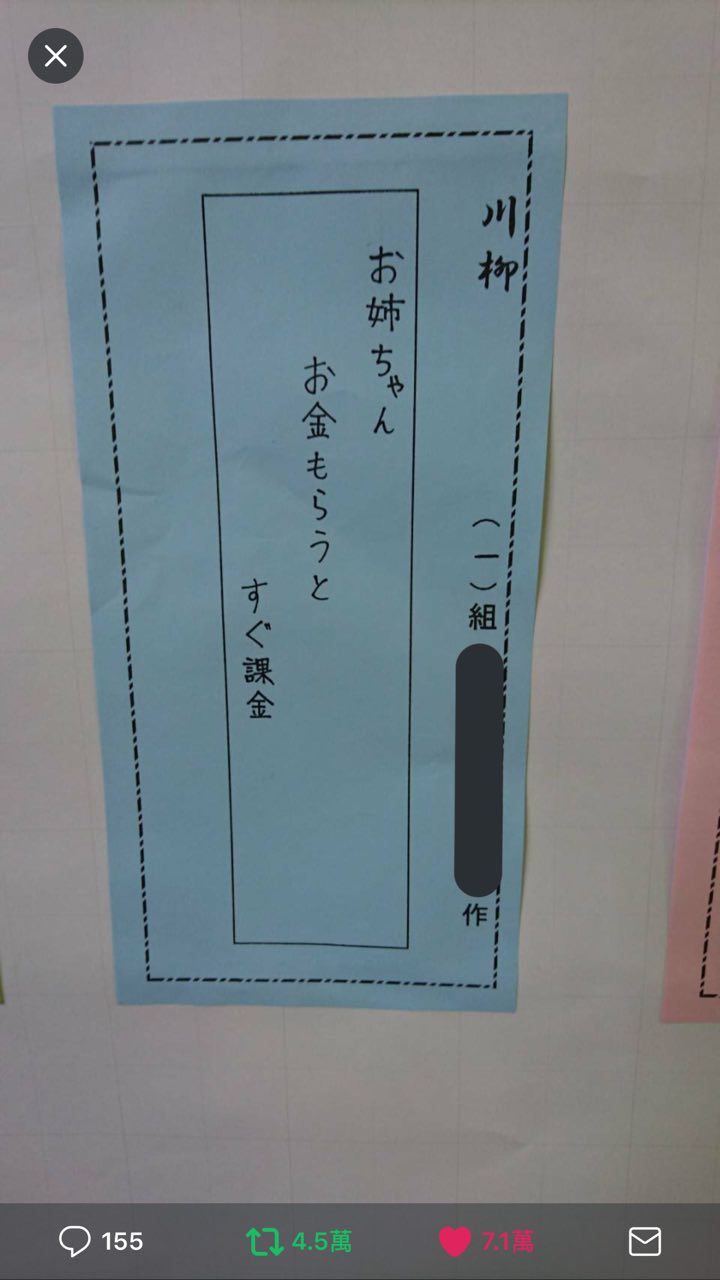 川柳
(一)組
作
お姉ちゃん
お金もらうと
すぐ課金
155
4.5萬
7.1萬